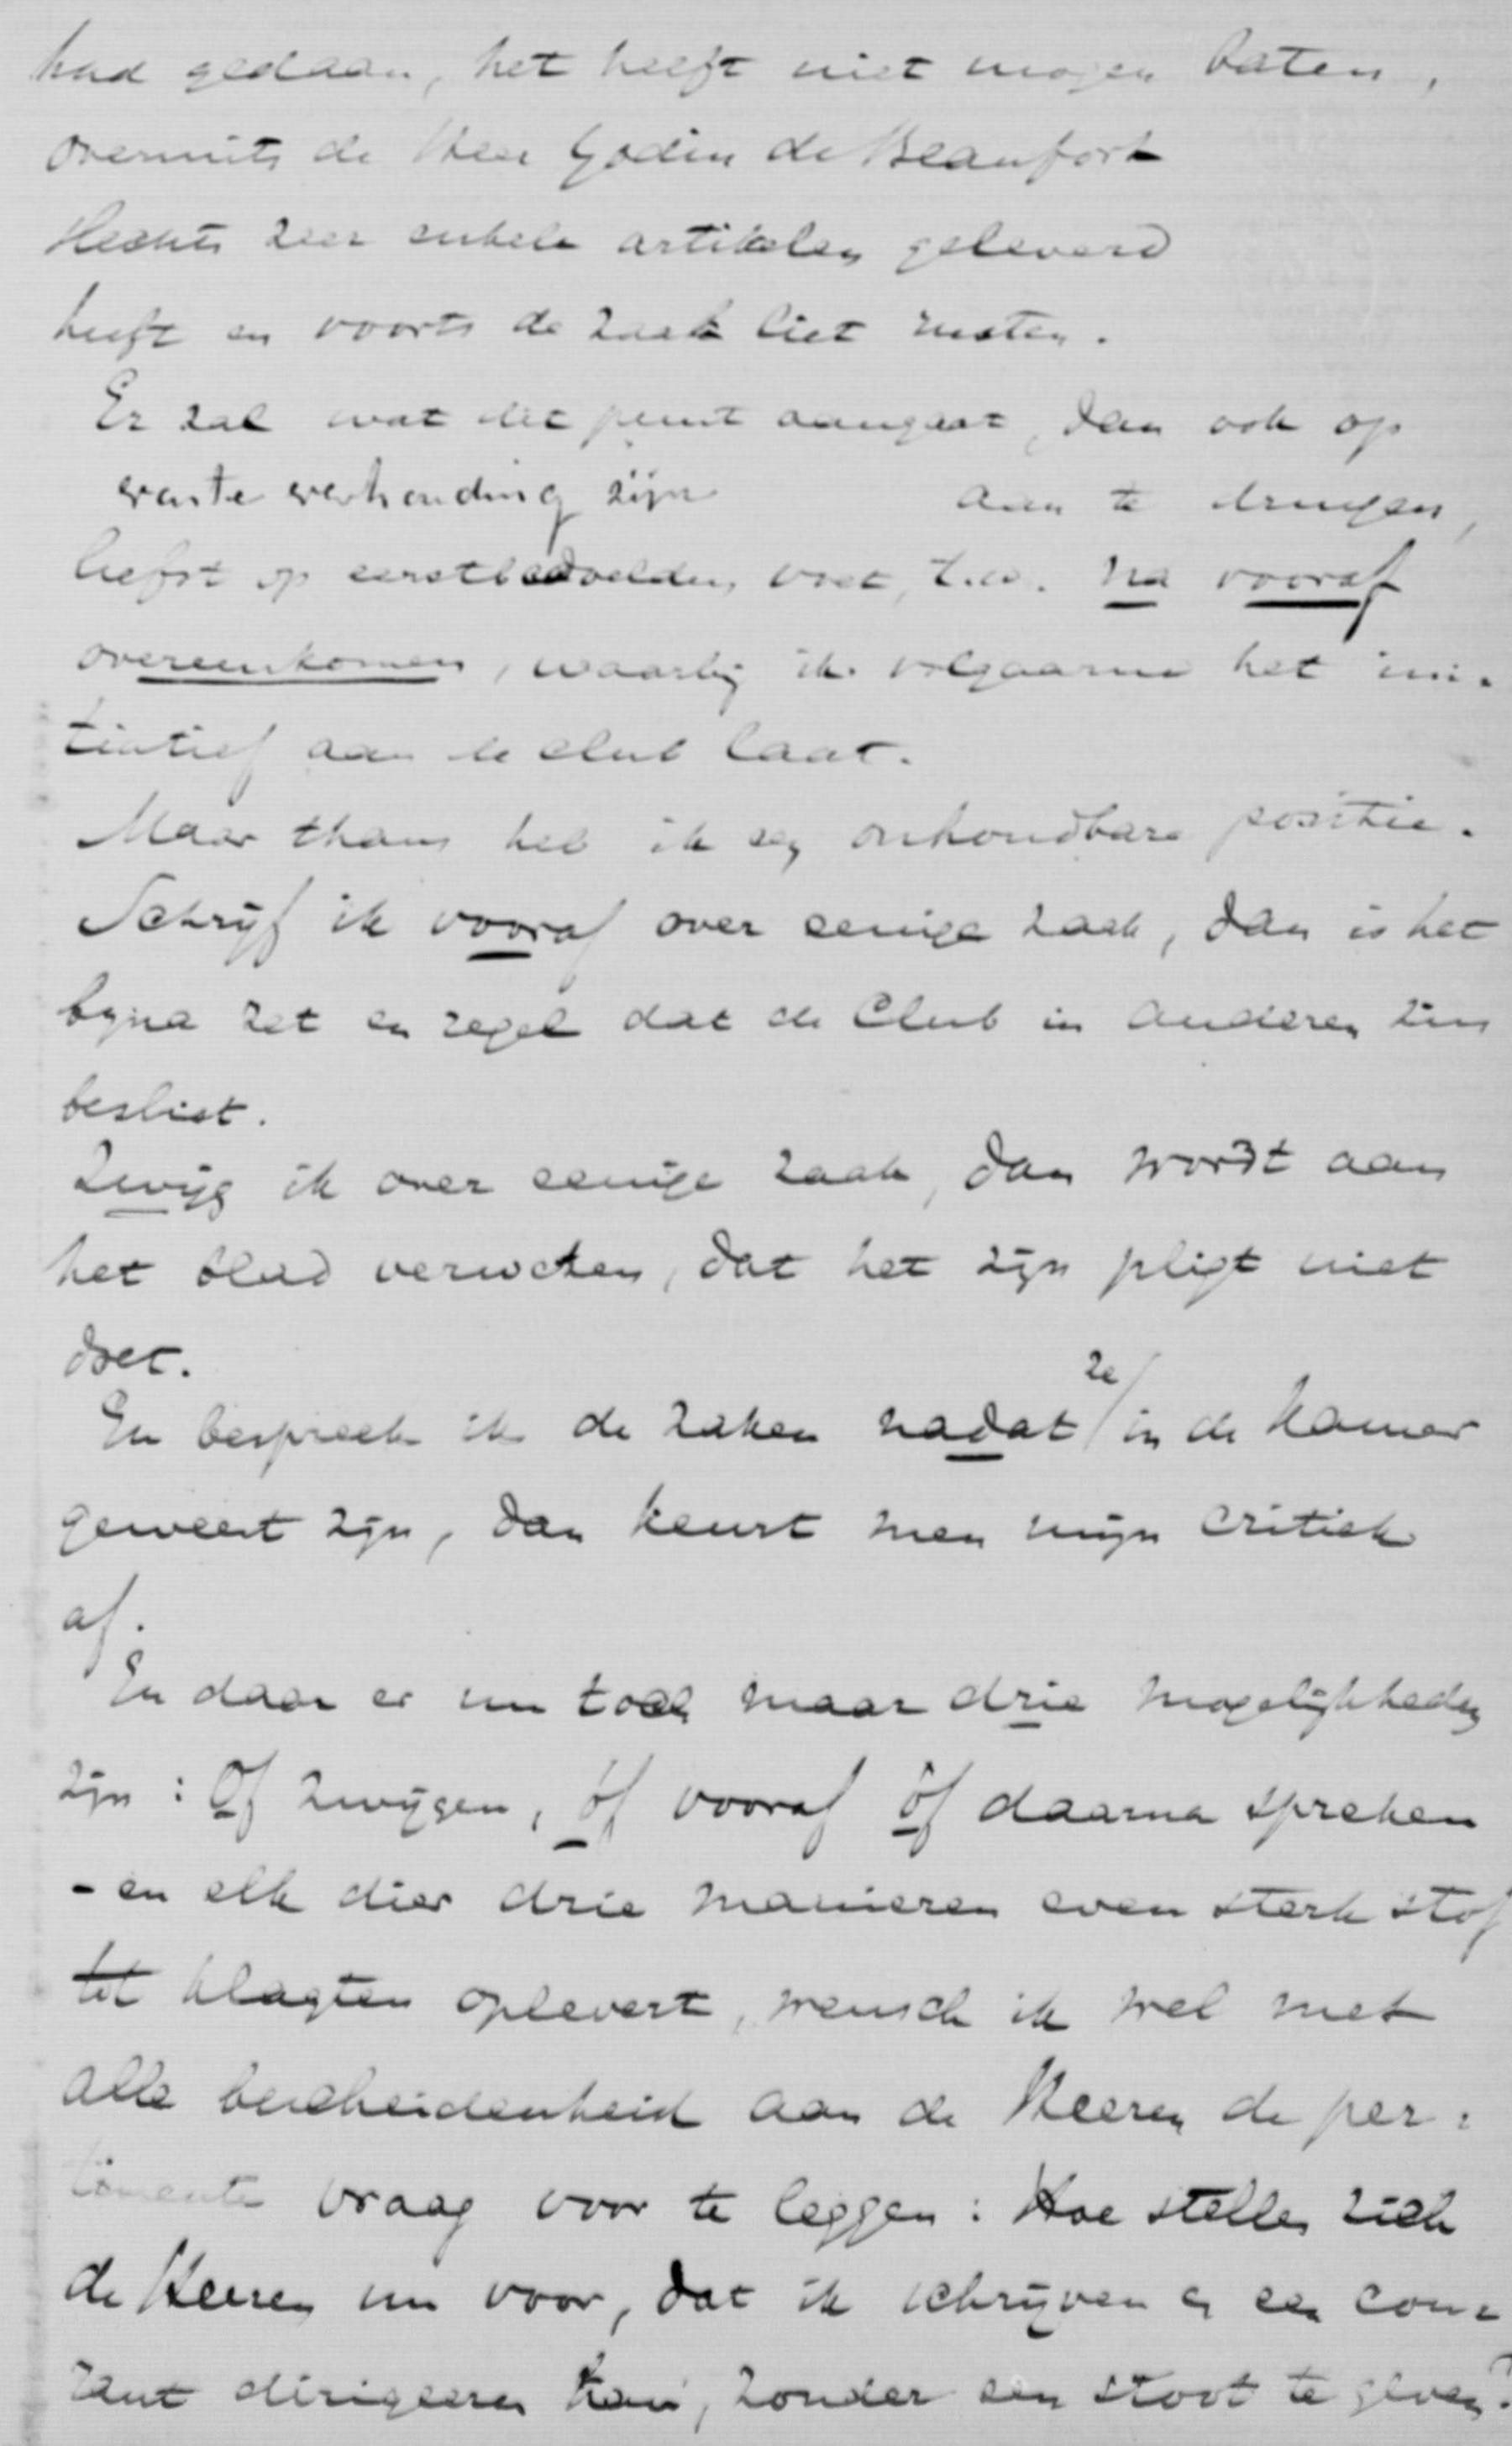 had gedaan, het heeft niet mogen baten,
overmits de Heer Godin de Beaufort
slechts zeer enkele artikelen geleverd
heeft en voorts de zaak liet rusten.
Er zal wat dit punt aangaat, dan ook op
vaste verhouding zijn aan te dringen,
liefst op eerstbedoelden voet, t.w. na vooraf
overeenkomen, waarbij ik volgaarne het ini-
tiatief aan de club laat.
Maar thans heb ik een onhoudbare positie.
Schrijf ik vooraf over eenige zaak, dan is het
byna zet en regel dat de Club in anderen zin
beslist.
Zwijg ik over eenige zaak, dan wordt aan
het blad verweten, dat het zijn pligt niet
doet.
En bespreek ik de zaken nadat ze in de Kamer
geweest zijn, dan keurt men mijn critiek
af.
En daar er nu toch maar drie mogelijkheden
zijn: Of zwijgen, óf vooraf óf daarna spreken
- en elk dier drie manieren even sterk stof
tot klagten oplevert, wensch ik wel met
alle bescheidenheid aan de Heeren de per-
tinente vraag voor te leggen: Hoe stellen zich
de Heeren nu voor, dat ik schrijven en een cou-
rant dirigeeren kan, zonder een stoot te geven?